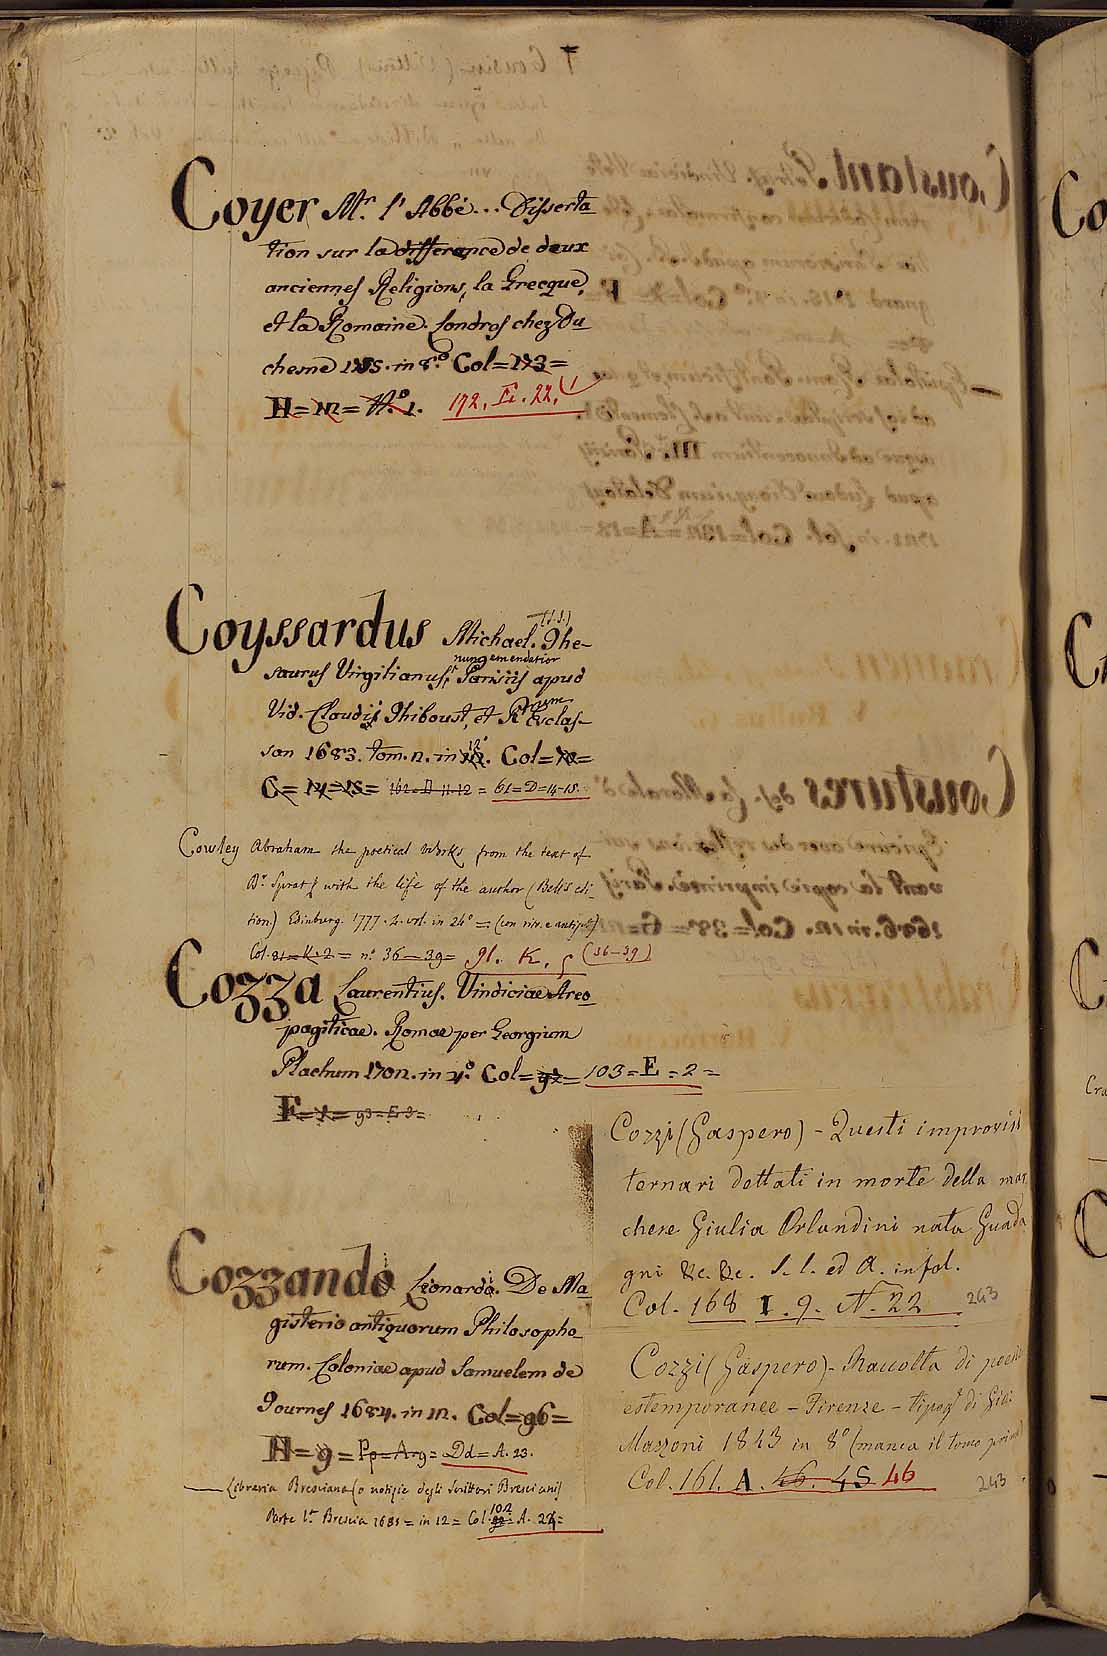 Coyer Mr. l'Abbé... Disserta
tion sur la differance de deux
anciennes Religions, la Grecque,
et la Romaine. Londres chez Du
chesne 1755. in 8.º Col=173=
H=12=N.º 1. 172. E. 22,
Coyssardus Michael. The-
saurus Virgilianus, nunc emendatior Parisiis apud
Vid. Claudii Thiboust, et Esclas-
son 1683. tom. 2. in 12º. Col=70=
C=14=15= 162=D 11-12 = 61=D=14-15.
Cowley Abraham the poetical Works from the text of
Dr. Sprat & with the life of the author (Bell's edi-
tion) Edinburg. 1777. 2. vol. in 24º = (con riv. e antip.)
Col. 81=K. 2 = nº 36-39= 91. K. (36-39)
Cozza Laurentius. Vindiciae Areo
pagiticae. Romae per Georgium
Plachum 1702. in 4.º Col=92= 103=E=2=
F=1= 93=E 3=
Cozzando Leonardo. De Ma
gisterio antiquorum Philosopho
rum. Coloniae apud Samuelem de
Tournes 1684. in 12. Col=96=
H=9= Pp=A=9= Dd=A. 23.
Libraria Bresciana (o notizie degli Scrittori Bresciani)
Parte 1ª Brescia 1685= in 12= Col. 102= A. 24=
Cozzi (Gaspero) - Questi improvisi
ternari dettati in morte della mar
chese Giulia Orlandini nata Guada
gni &c. &c. S. l. ed A. in fol.
Col. 168 I. 9. N. 22 243
Cozzi (Gaspero) - Raccolta di poesie
estemporanee - Firenze - tipogr. di Gio:
Mazzoni 1843 in 8º (manca il tomo primo)
Col. 161. A. 46. 45 46 243